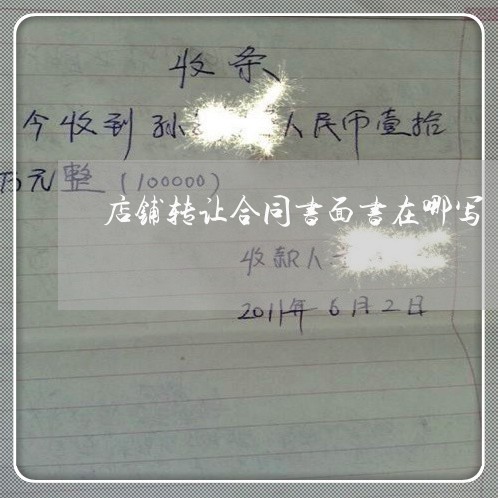 收条
今收到孙 人民币壹拾
万元整（100000）
店铺转让合同书面书在哪写
收款人
2011年6月2日